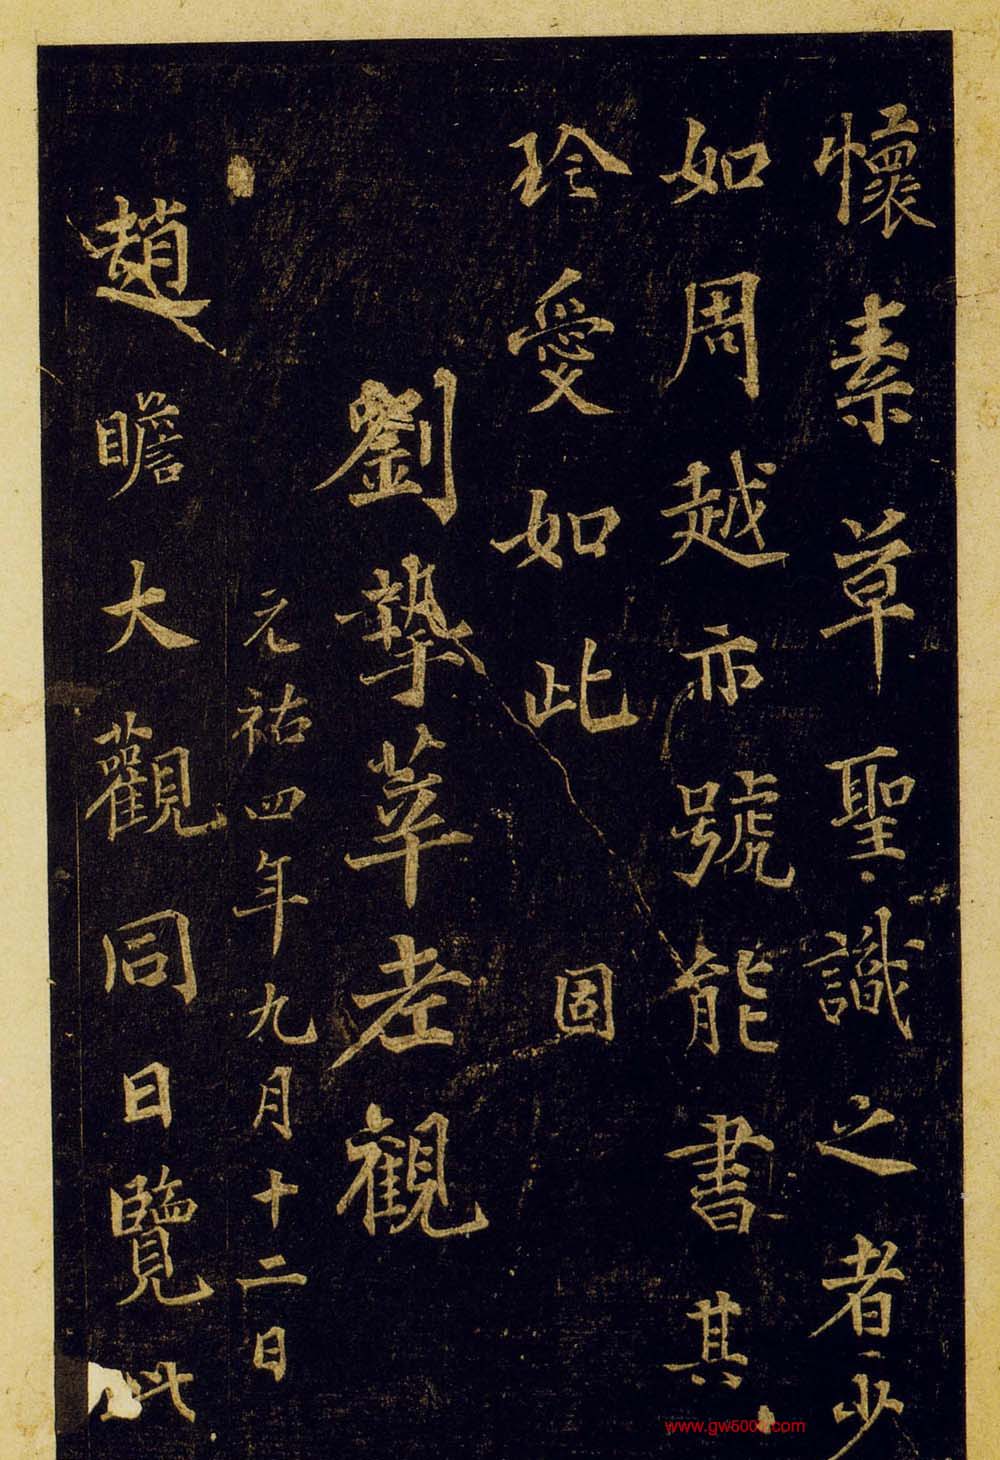 懷素草聖識之者少
如周越亦號能書其
珍愛如此 固
劉摯莘老觀
元祐四年九月十二日
趙瞻大觀同日覽此
www.gw500.com